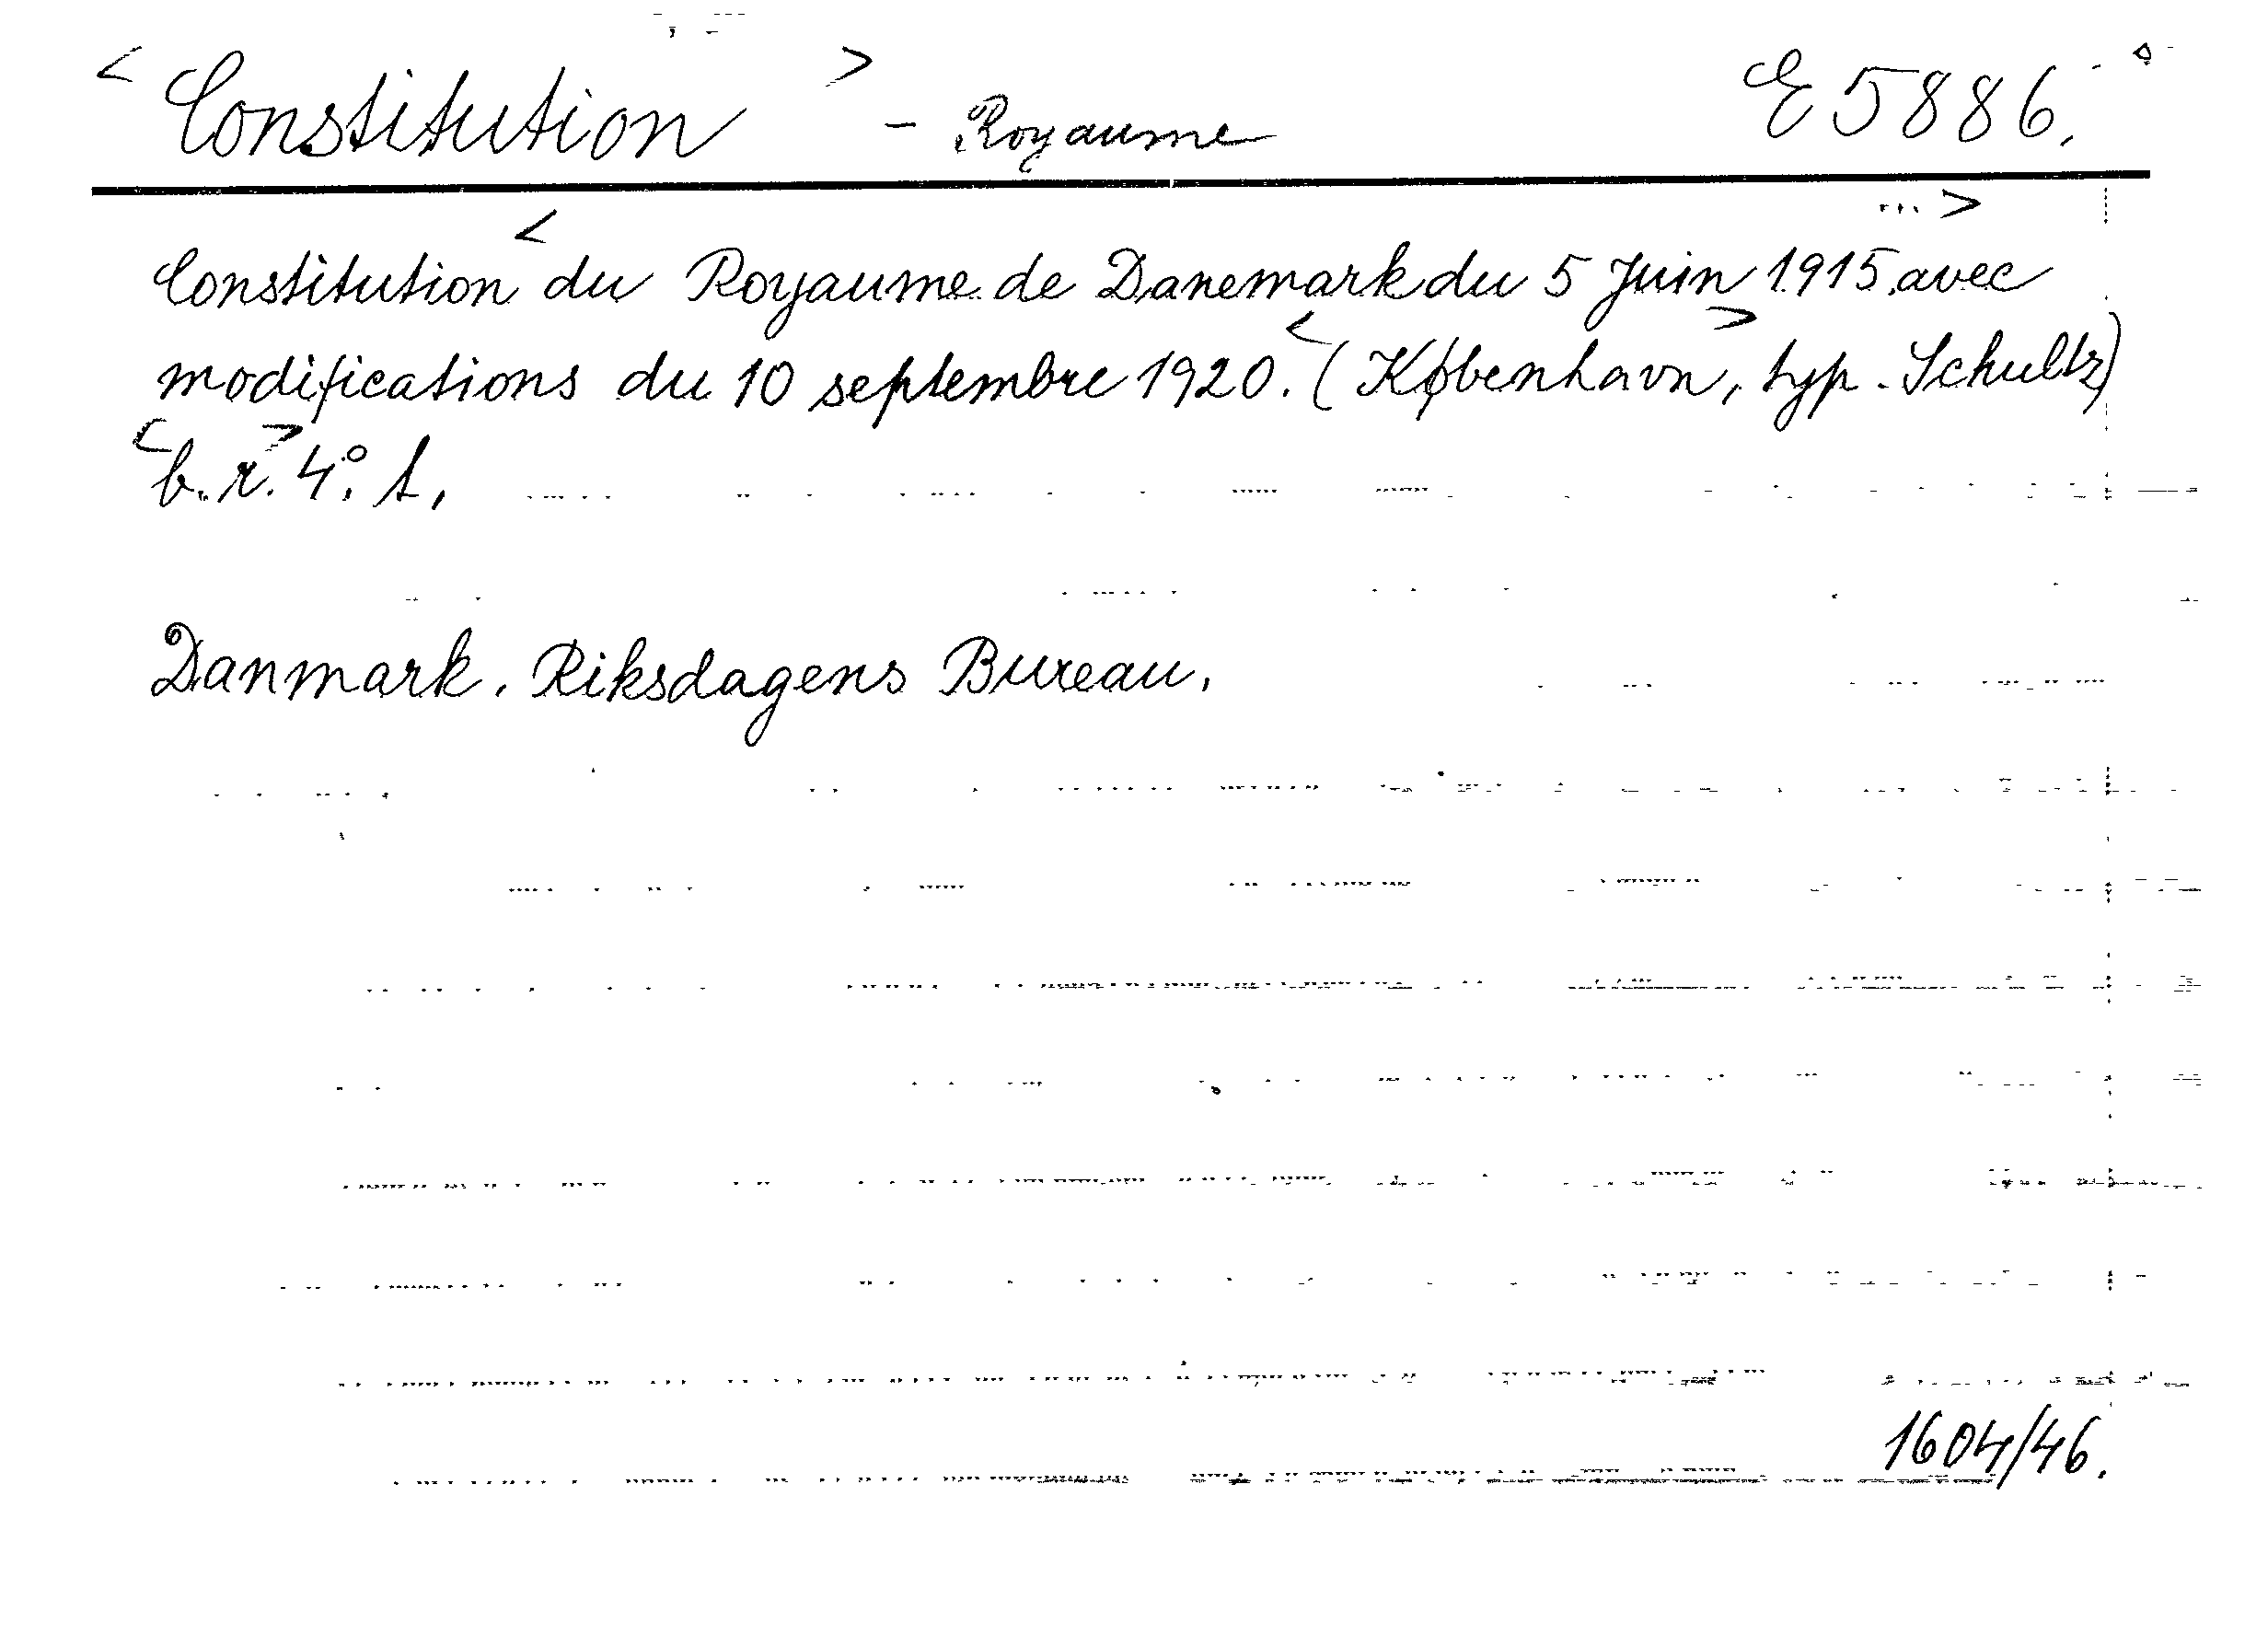 < Constitution > - Royaume E 5886.
Constitution < du Royaume de Danemark du 5 Juin 1915, avec ... >
modifications du 10 septembre 1920. < (København >, typ. Schultz)
< b. r. > 4:o 1,
Danmark. Riksdagens Bureau.
1604/46.